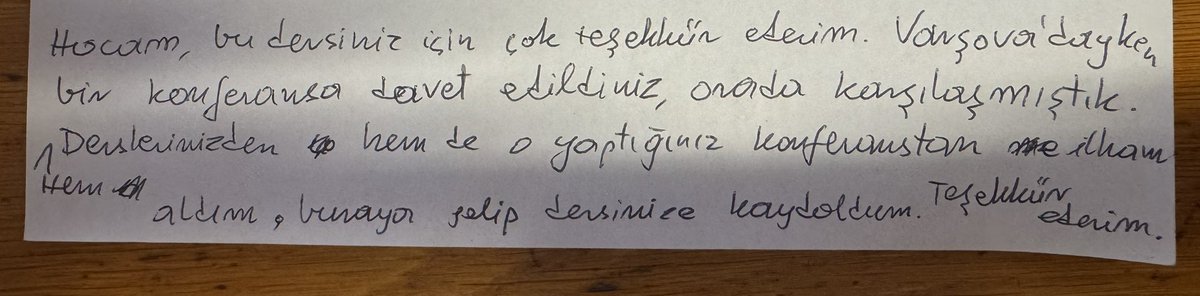 Hocam, bu dersiniz için çok teşekkür ederim. Varşova'dayken
bir konferansa davet edildiniz, orada karşılaşmıştık.
Hem Derslerinizden hem de o yaptığınız konferanstan ilham
aldım, buraya gelip dersinize kaydoldum. Teşekkür ederim.